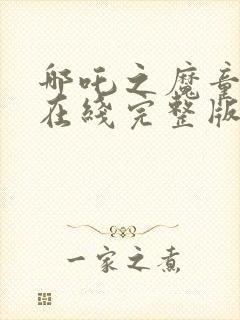 哪吒之魔童
在綫完整版
一家之煮